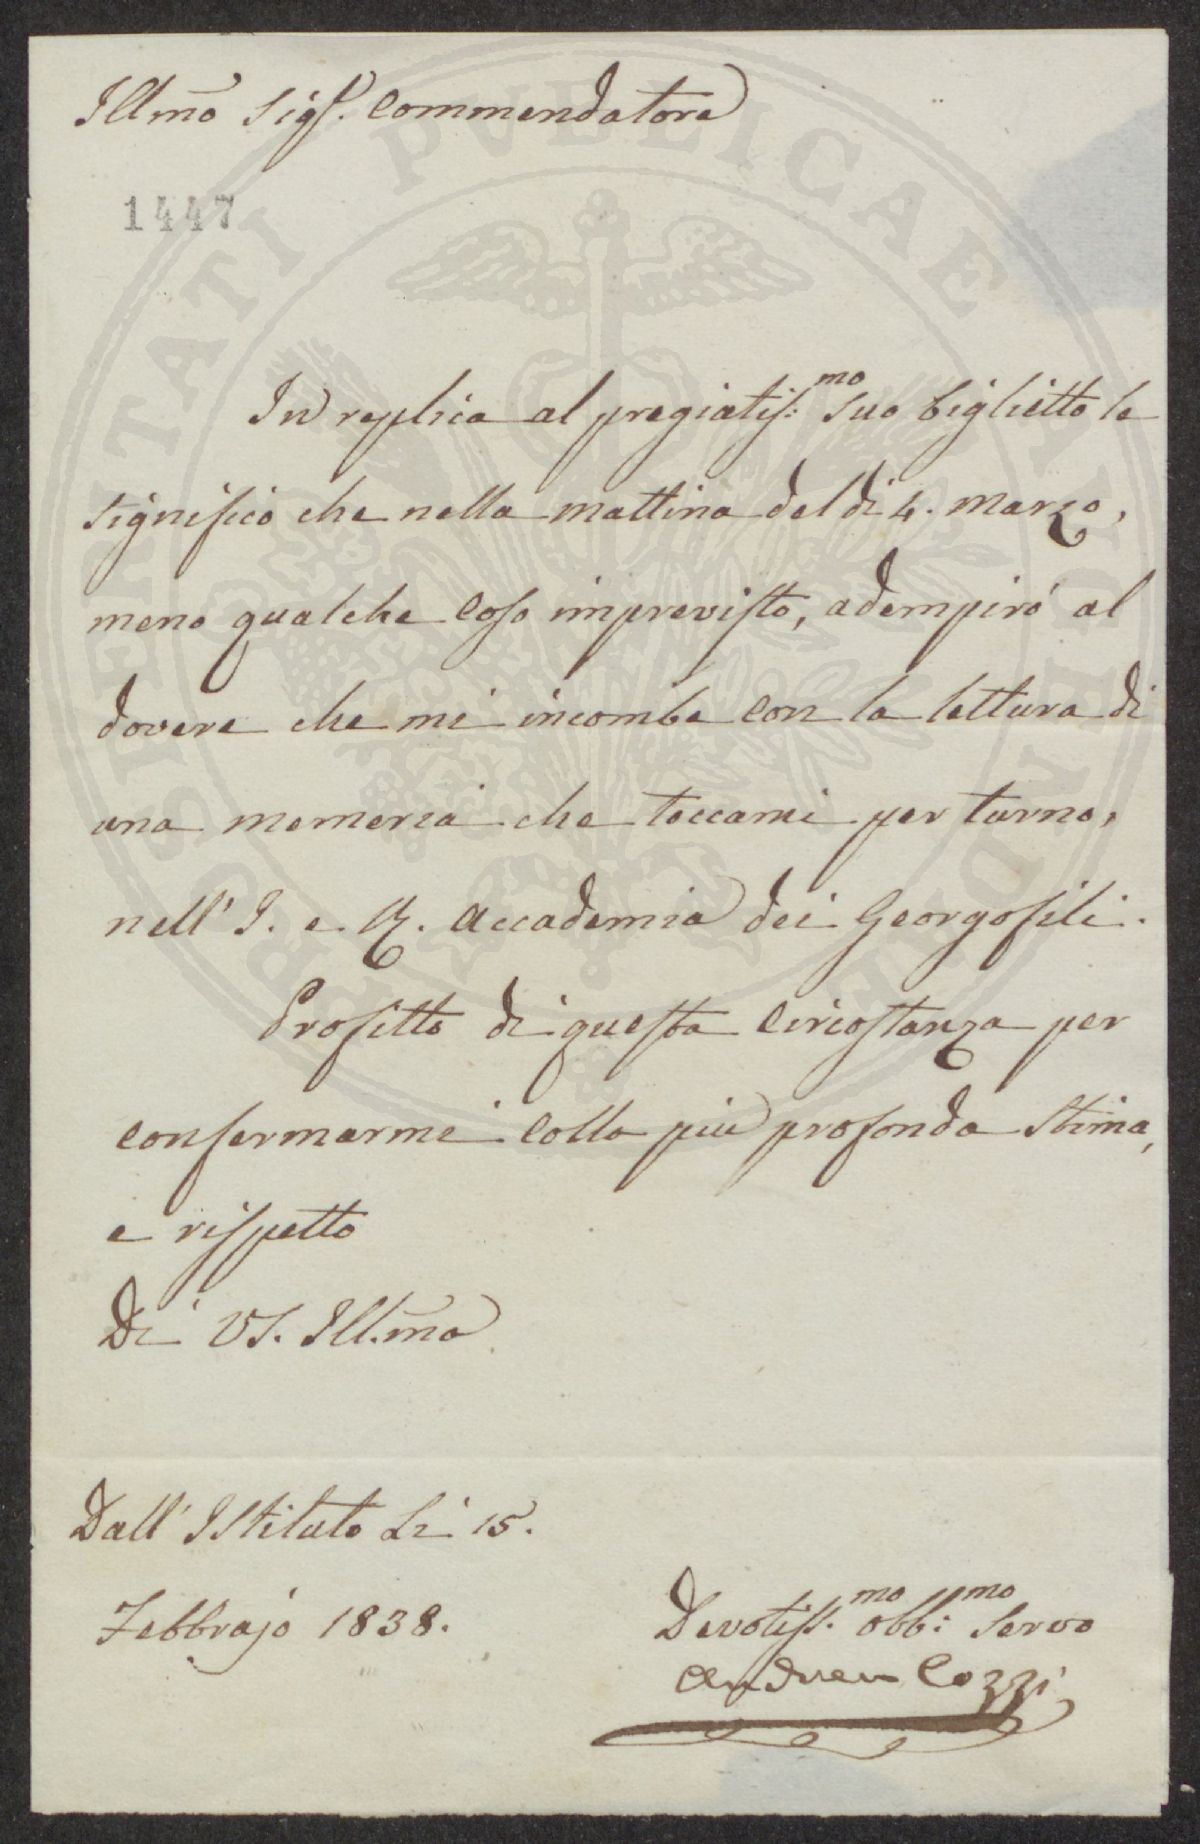 Illmo Sigr. Commendatore
1447
In replica al pregiatiss: mo suo biglietto le
significo che nella mattina del dì 4. Marzo,
meno qualche caso imprevisto, adempirò al
dovere che mi incombe con la lettura di
una memoria che toccami per turno,
nell' I. e R. Accademia dei Georgofili.
Profitto di questa circostanza per
confermarmi colla più profonda stima,
e rispetto
Di VS. Ill.ma
Dall' Istituto Li 15.
Febbrajo 1838.
Devotiss. mo Obb: mo Servo
Andrea Cozzi
PROSPERITATI PVBLICAE AVGENDAE